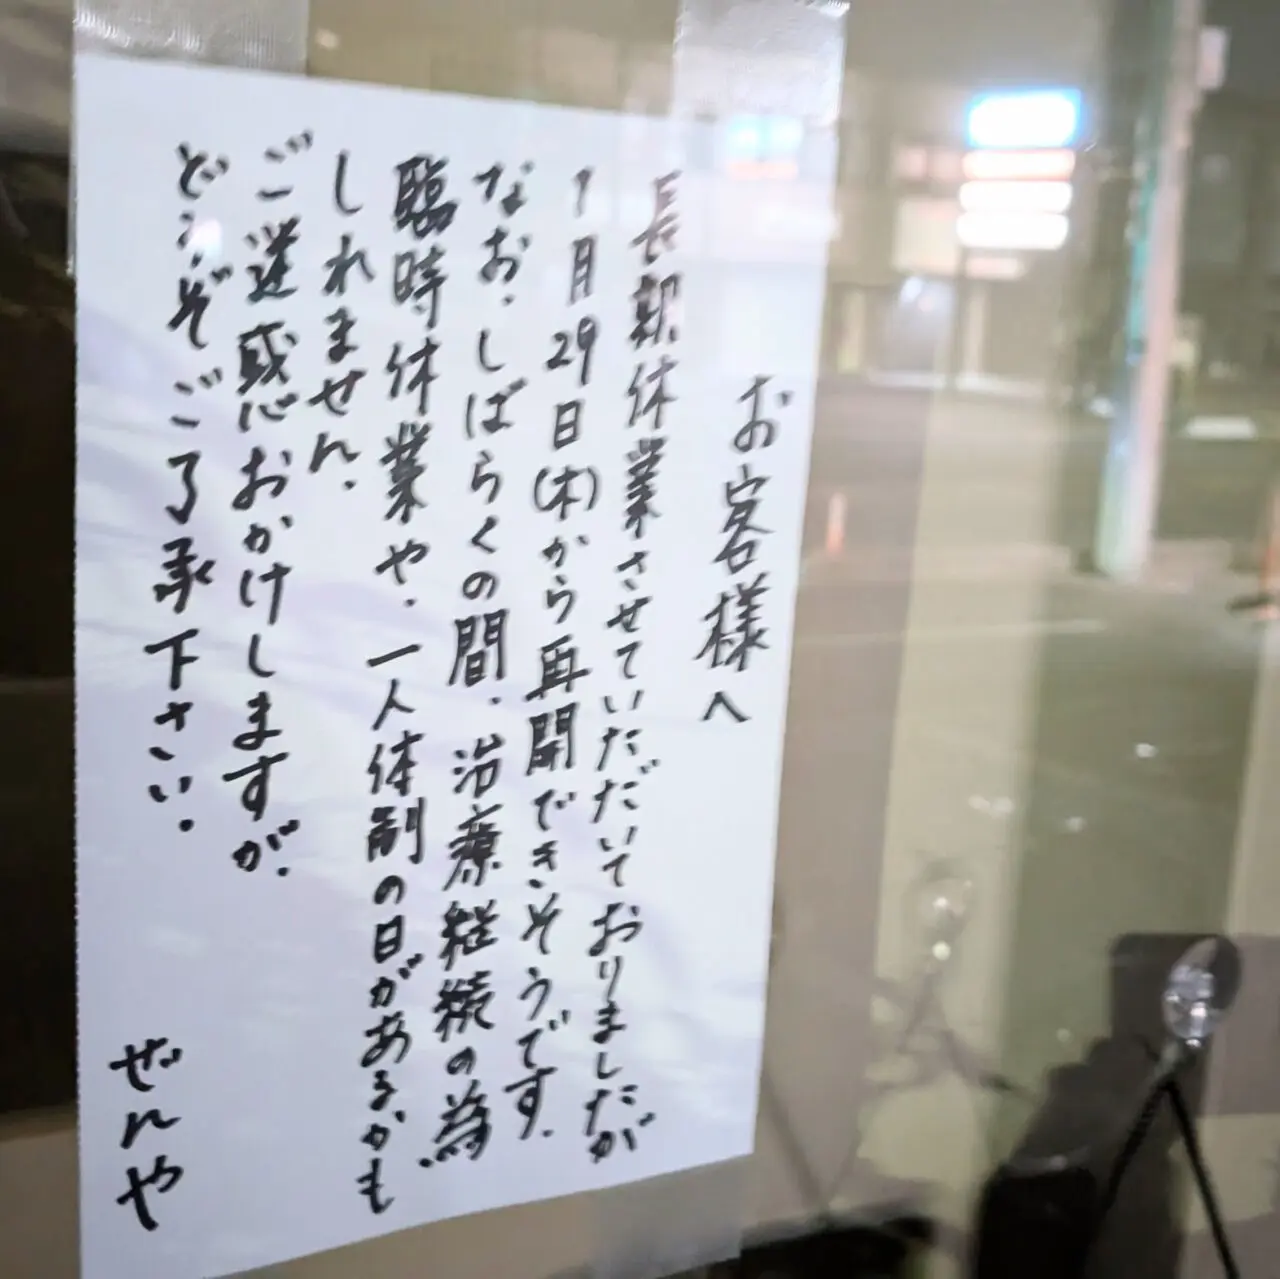 お客様へ
長期休業させていただいておりましたが
1月29日(木)から再開できそうです.
なお、しばらくの間、治療継続の為、
臨時休業や、一人体制の日があるかも
しれません.
ご迷惑おかけしますが、
どうぞご了承下さい.
ぜんや